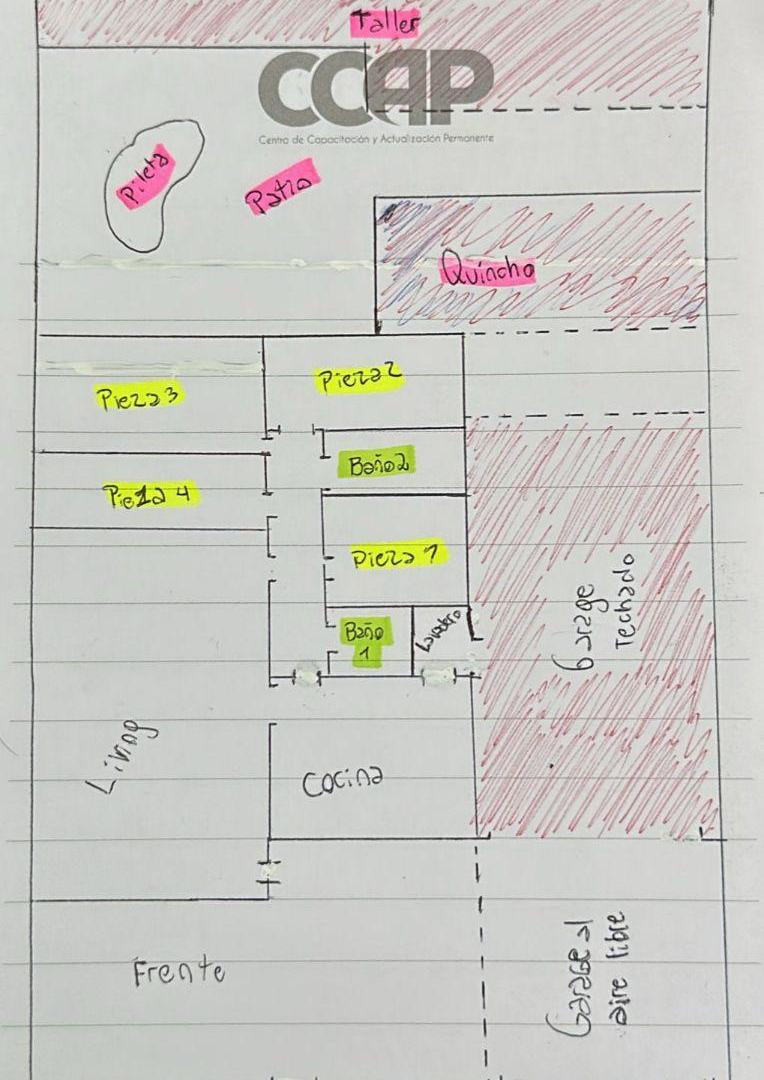 Taller
CCAP
Centro de Capacitación y Actualización Permanente
Pileta
Patio
Quincho
Pieza 3
Pieza 2
Baño 2
Pieza 4
Pieza 1
Baño
1
Lavadero
Garage
techado
Living
Cocina
Frente
Garage al
aire libre